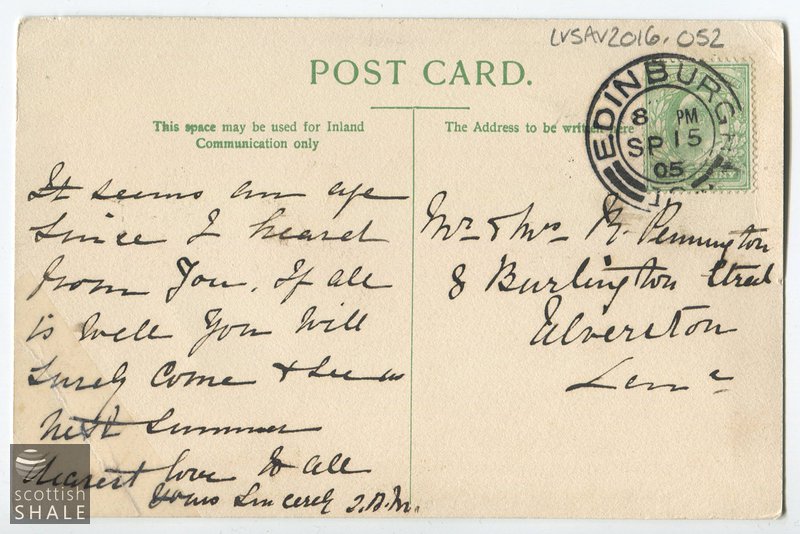 LVSAV2016.052
POST CARD.
This space may be used for Inland
Communication only
The Address to be written here
EDINBURGH
8 PM
SP 15
05
It seems an age
since I heard
from you. If all
is well you will
surely come & see us
next summer
dearest love to all
yours sincerely J.B.M.
Mr & Mrs R. Pennington
8 Burlington Street
Ulverston
scottish
SHALE